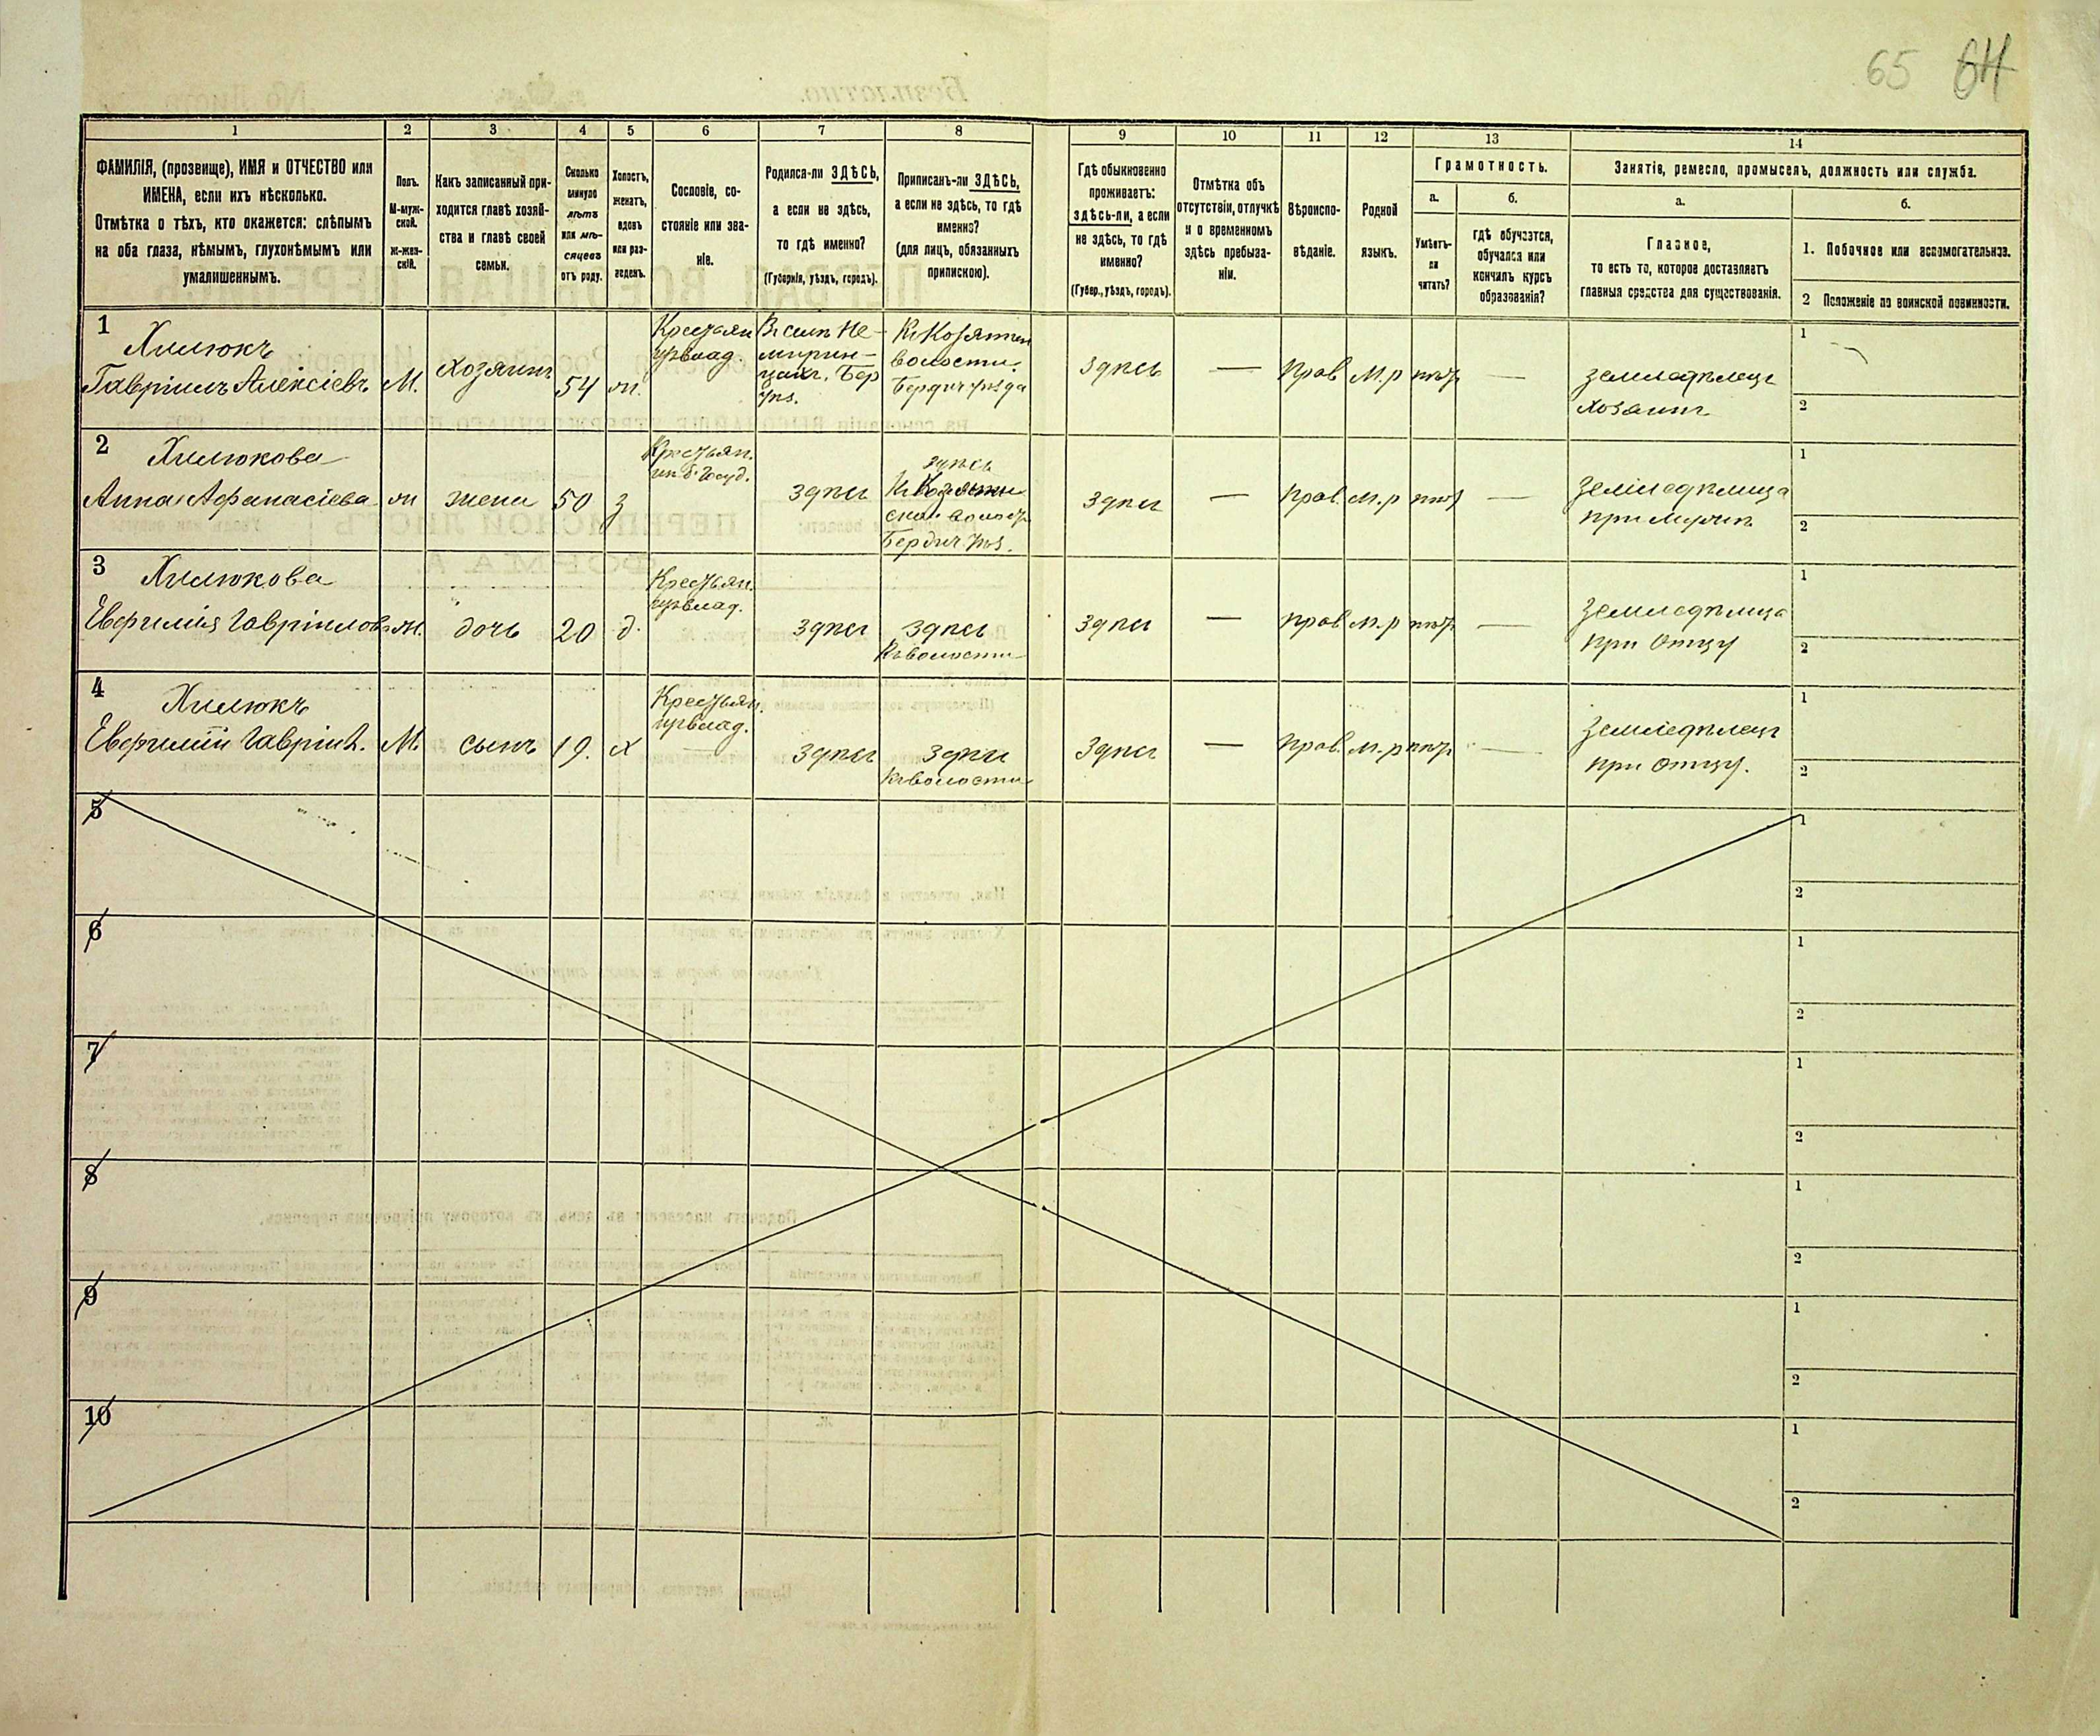 65 64
1 2 3 4 5 6 7 8 9 10 11 12 13 14
ФАМИЛІЯ, (прозвище), ИМЯ и ОТЧЕСТВО или
ИМЕНА, если ихъ нѣсколько.
Отмѣтка о тѣхъ, кто окажется: слѣпымъ
на оба глаза, нѣмымъ, глухонѣмымъ или
умалишеннымъ.
Полъ.
М-муж-
ской.
ж-жен-
скій.
Какъ записанный при-
ходится главѣ хозяй-
ства и главѣ своей
семьи.
Сколько
минуло
лѣтъ
или мѣ-
сяцевъ
отъ роду.
Холостъ,
женатъ,
вдовъ
или раз-
веденъ.
Сословіе, со-
стояніе или зва-
ніе.
Родился-ли ЗДѢСЬ,
а если не здѣсь,
то гдѣ именно?
(Губернія, уѣздъ, городъ).
Приписанъ-ли ЗДѢСЬ,
а если не здѣсь, то гдѣ
именно?
(для лицъ, обязанныхъ
припискою).
Гдѣ обыкновенно
проживаетъ:
здѣсь-ли, а если
не здѣсь, то гдѣ
именно?
(Губер., уѣздъ, городъ).
Отмѣтка объ
отсутствіи, отлучкѣ
и о временномъ
здѣсь пребыва-
ніи.
Вѣроиспо-
вѣданіе.
Родной
языкъ.
Грамотность.
а.
Умѣетъ-
ли
читать?
б.
гдѣ обучается,
обучался или
кончилъ курсъ
образованія?
Занятіе, ремесло, промыселъ, должность или служба.
а.
Главное,
то есть то, которое доставляетъ
главныя средства для существованія.
б.
1. Побочное или вспомогательное.
2 Положеніе по воинской повинности.
1 Хилюкъ
Гавріилъ Алексіевъ М. хозяинъ 54 ж.
Крестьян
изъ влад.
Въ селѣ Не-
мирин-
цахъ, Бер
уѣз.
Къ Козятин
волости.
Бердич уѣзда
здѣсь — прав м.р нѣтъ —
земледѣлецъ
хозяинъ
1
2
2 Хилюкова
Анна Афанасіева ж жена 50 з
Крестьян.
здѣсь
здѣсь
Къ Козятин
ской волост
Бердич. уѣз.
здѣсь — прав. м.р нѣт —
земледѣлица
при мужѣ
1
2
3 Хилюкова
Евфимія Гавріилов ж. дочь 20 д.
Крестьян.
изъ влад.
здѣсь здѣсь
Къ волости
здѣсь — прав м.р нѣт —
земледѣлица
при отцу
1
2
4 Хилюкъ
Евфимій Гавріил. М. сынъ 19. х
Крестьян.
изъ влад.
здѣсь здѣсь
къ волости
здѣсь — прав. м.р нѣт —
земледѣлецъ
при отцу.
1
2
5
1
2
6
1
2
7
1
2
8
1
2
9
1
2
10
1
2